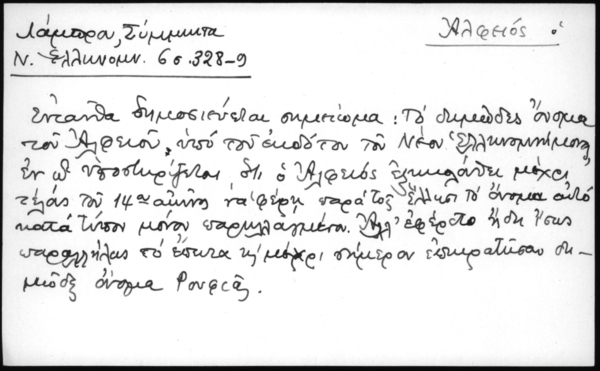 Λάμπρου, Σύμμικτα
Ἀλφειός ὁ
Ν. Ἑλληνομν. 6 σ. 328-9
Ἐνταῦθα δημοσιεύεται σημείωμα: Τὸ δημῶδες ὄνομα
τοῦ Ἀλφειοῦ, ὑπὸ τοῦ ἐκδότου τοῦ Νέου Ἑλληνομνήμονος
ἐν ᾧ ὑποστηρίζεται ὅτι ὁ Ἀλφειός ἐξηκολούθει μέχρι
τέλους τοῦ 14ου αἰῶνος νὰ φέρῃ παρὰ τοῖς Ἕλλησι τὸ ὄνομα αὐτὸ
κατὰ τύπον μόνον παρηλλαγμένον. Ἀλλ' ἐφέρετο ἤδη ἴσως
παραλλήλως τὸ ἔπειτα κ' μέχρι σήμερον ἐπικρατῆσαν δη-
μῶδες ὄνομα Ρουφιᾶς.